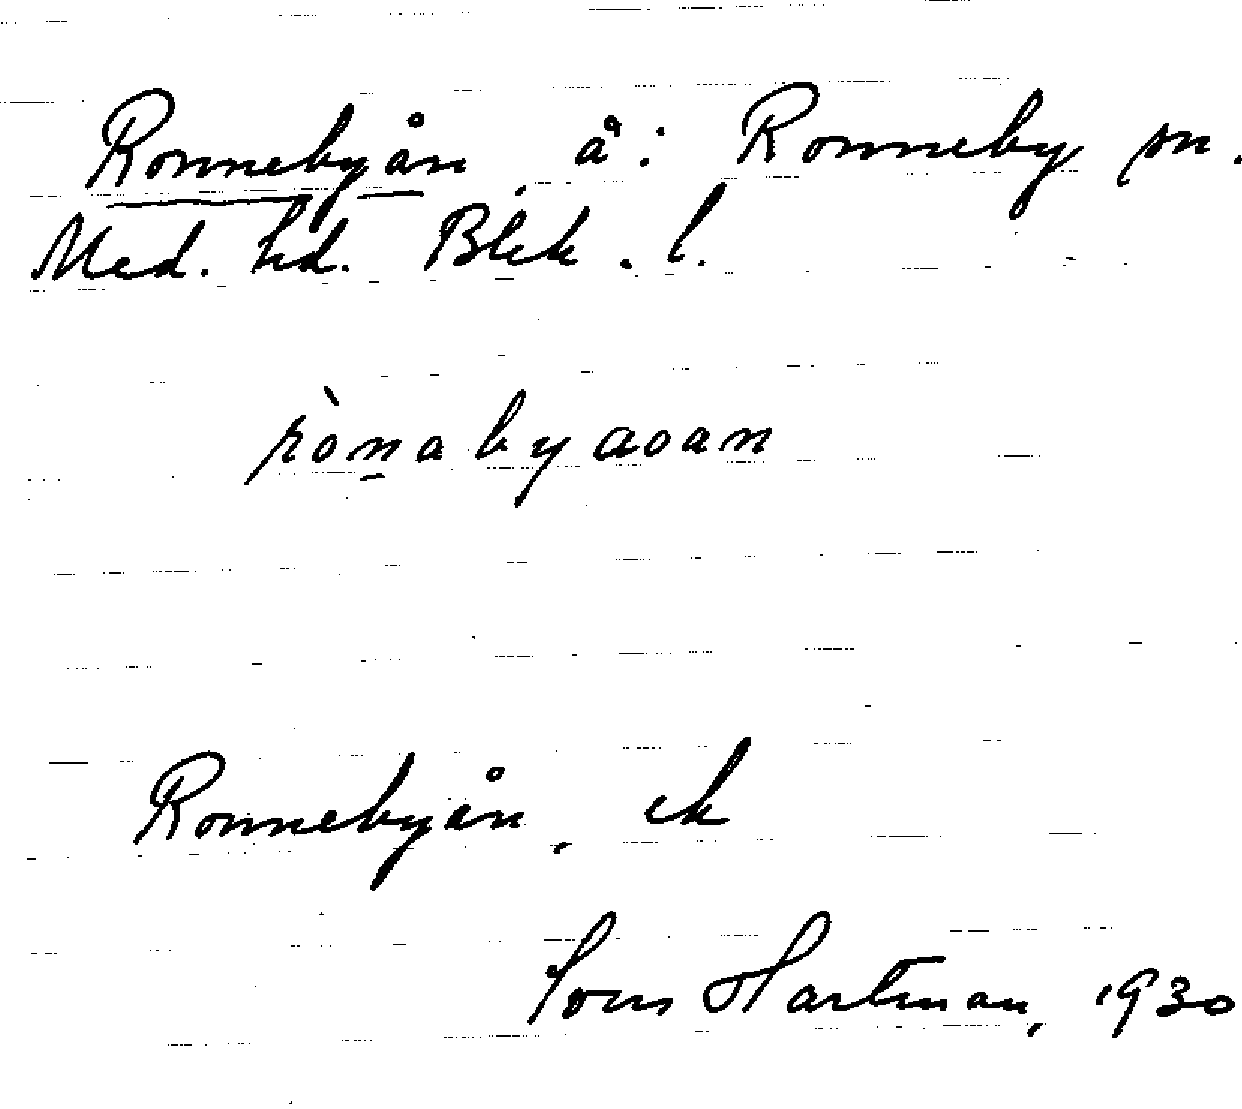 Ronnebyån, å: Ronneby sn.
Med. hd. Blek. l.
rònabyaoan
Ronnebyån, ek
Hartman, 1930